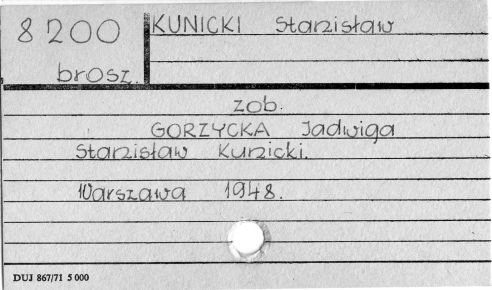 8200
brosz.
KUNICKI Stanisław
zob.
GORZYCKA Jadwiga
Stanisław Kunicki.
Warszawa 1948.
DUJ 867/71 5 000